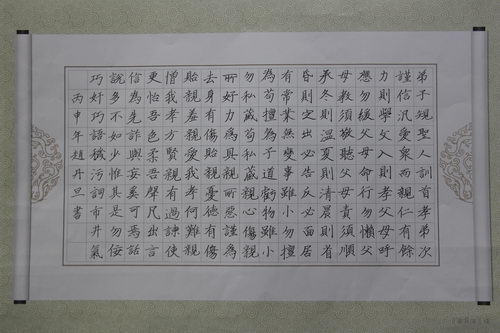 弟子規聖人訓首孝弟次
謹信汎愛眾而親仁有餘
力則學文入則孝父母呼
應勿緩父母命行勿懶父
母教須敬聽父母責須順
承冬則溫夏則凊晨則省
昏則定出必告反必面居
有常業無變事雖小勿擅
為苟擅為子道虧物雖小
勿私藏苟私藏親心傷親
所好力為具親所惡謹為
去身有傷貽親憂德有傷
貽親羞親愛我孝何難親
憎我孝方賢親有過諫使
更怡吾色柔吾聲凡出言
信為先詐與妄奚可焉話
說多不如少惟其是勿佞
巧奸巧語穢污詞市井氣
丙申年趙丹旦書